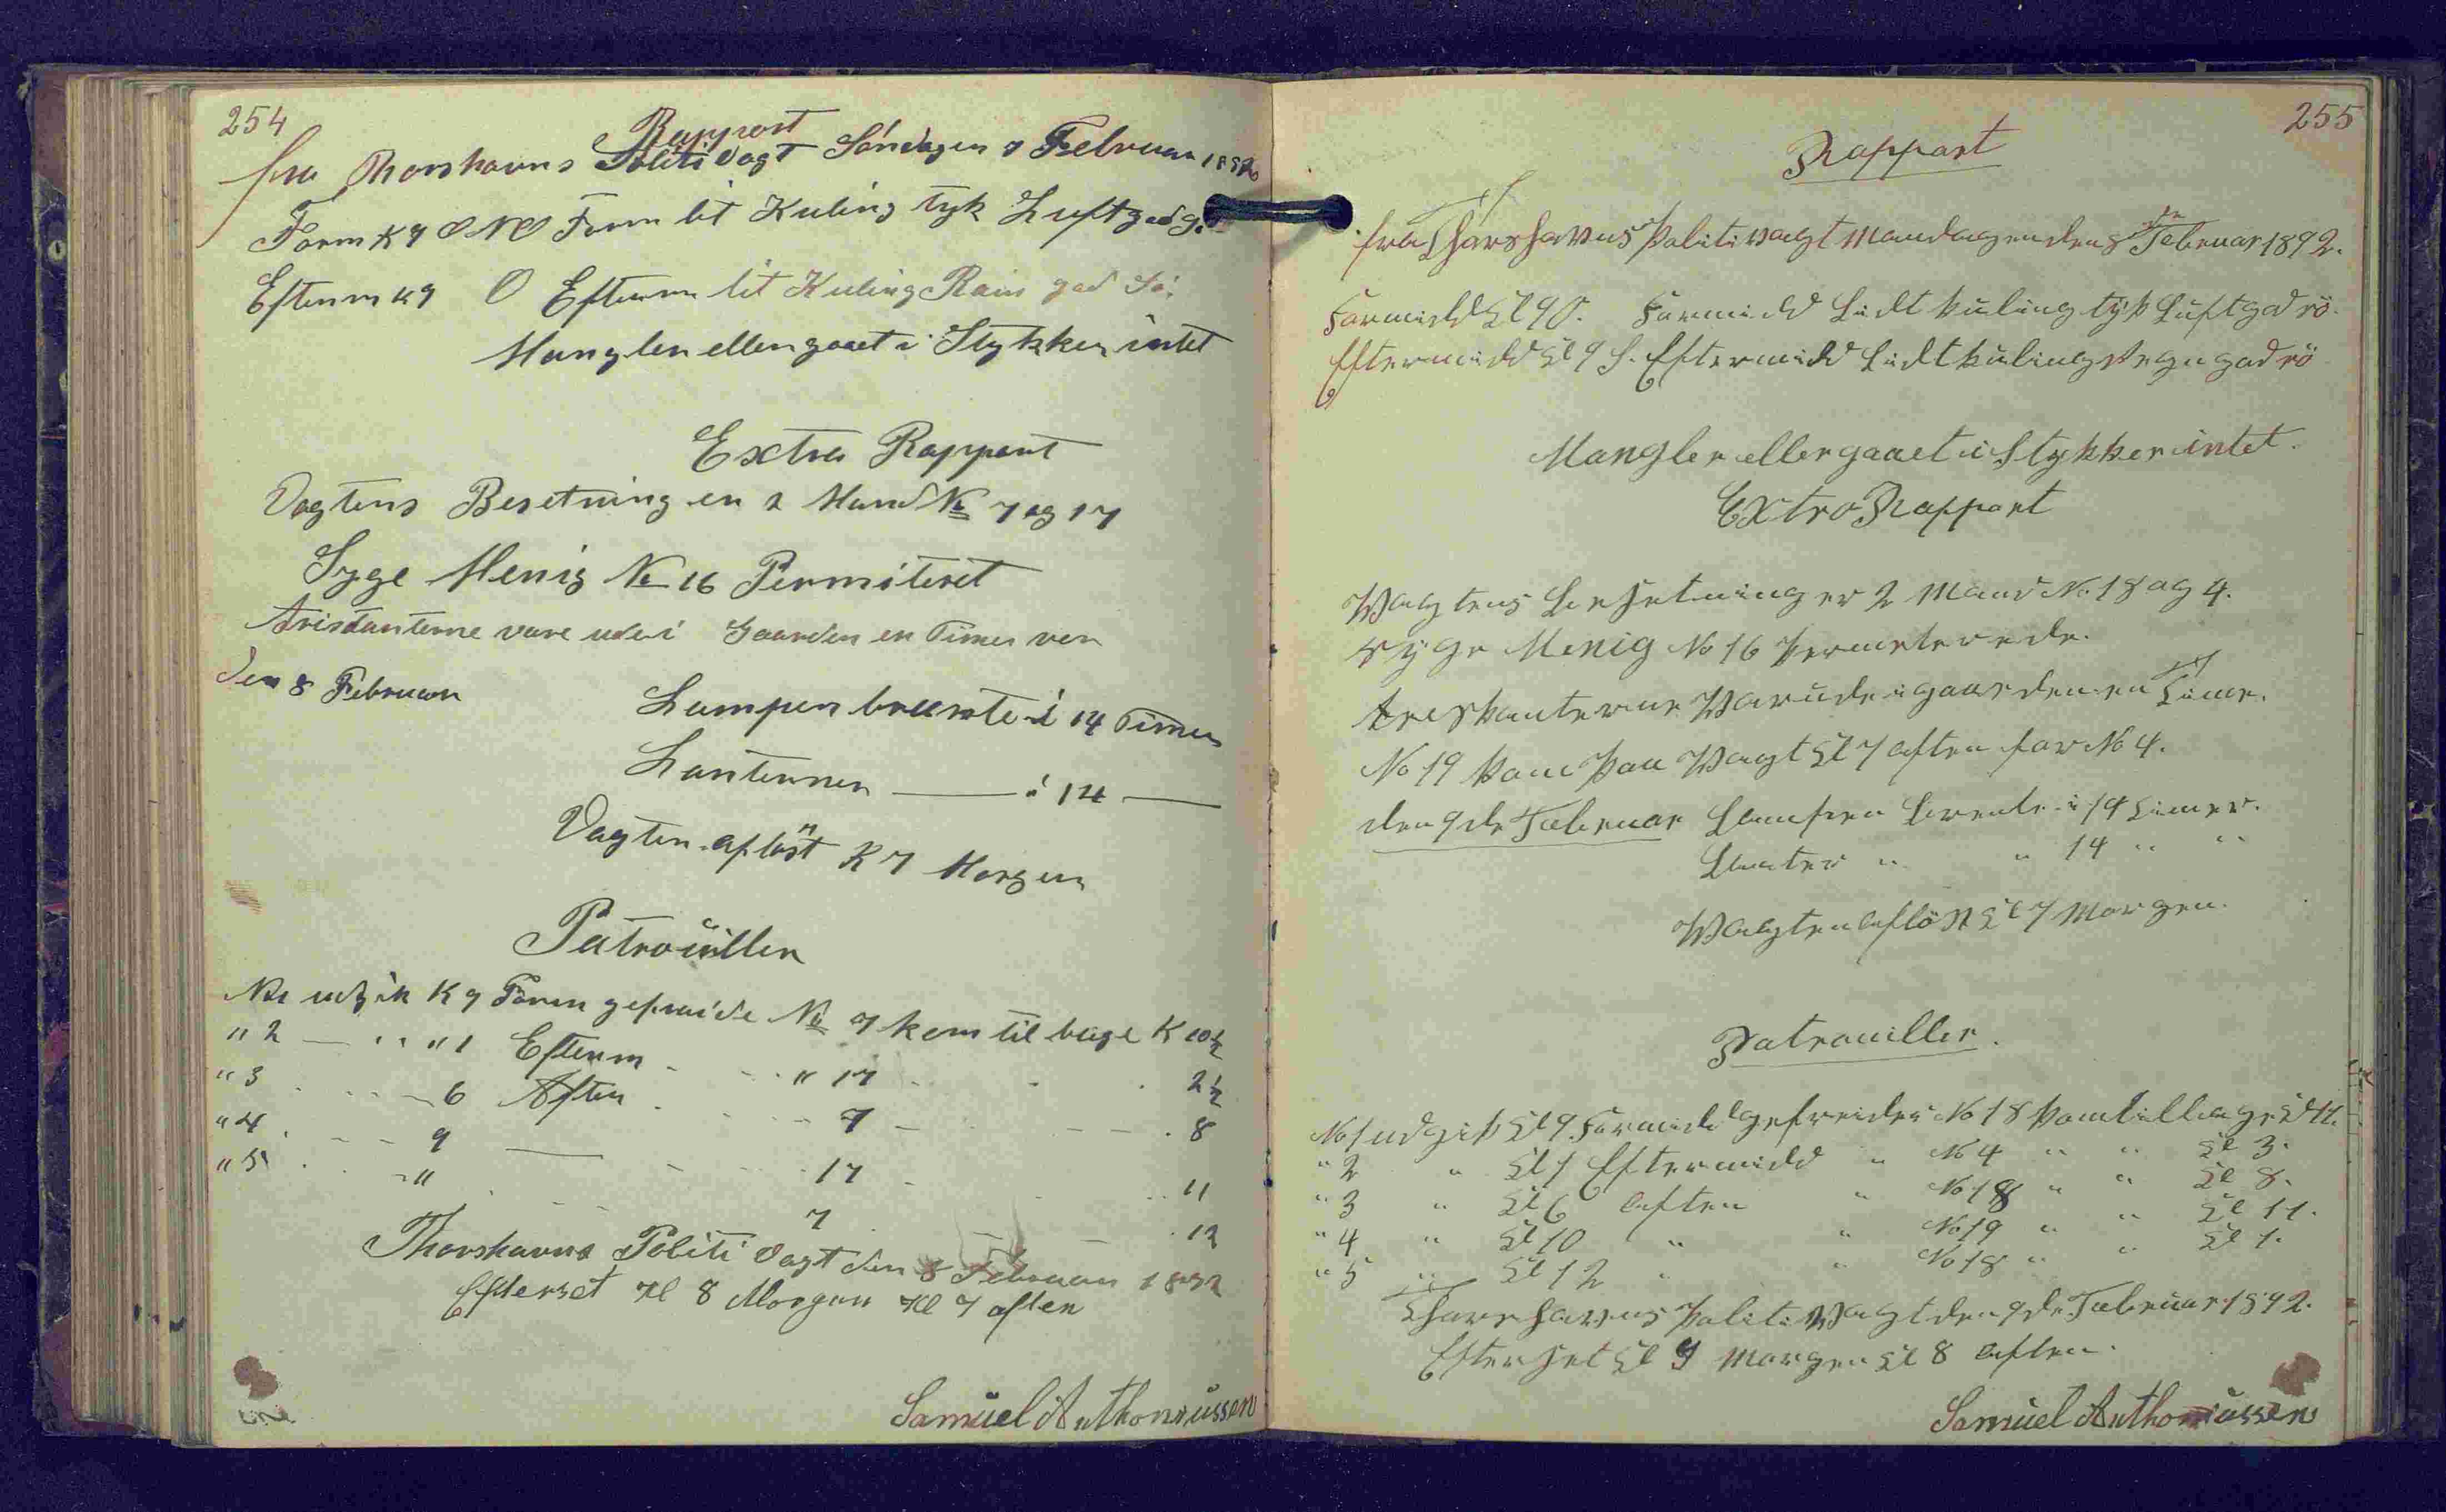 254
Rapport
fra Thorshavns Politi Vagt Söndagen 7 Februar 1892
Form K 9 ONO Form lit Kuling tyk Luft god
Efterm K 9 O Efterm lit Kuling Rain god Sö.
Mangler eller gaaet i Stykker intet
Extra Rappart
Vagtens Besetning er 2 Mand No 7 og 17
Syge Menig No 16 Permiteret
Aristanterne vare ude i Gaarden en Times
den 8 Februar
Lampen brænte i 14 Timer
Lanternen — i 14 —
Vagten aflöst K 7 Morgen
Patrouiller
No 1 udgik K 9 Form gefraide No 7 kom til bage K 10½
" 2 — " " 1 Efterm " 17 2½
" 3 6 Aften 7 — 8
" 4 9 — 17 11
" 5 " 7 12
Thorshavns Politi Vagt den 8 Februar 1892
Efterset Kl 8 Morgen Kl 7 aften
Samuel Anthoniussen
255
Rappart
fra Thorshavns Politivagt Mandagen den 8de Februar 1892.
Formidd Kl 9 O. Formidd Lidt kuling tyk Luft god sö.
Eftermidd Kl 9 S. Eftermidd Lidt kuling Regn god sö
Mangler eller gaaet i Stykker intet.
Extra Rappart
Wagtens Besetning er 2 Mand No 18 og 4.
Syge Menig No 16 Permeterede.
Arestanterne Var ude i gaarden en Time.
No 19 kom paa Wagt Kl 7 aften for No 4.
den 9de Februar Lampen brente i 14 Timer.
Lanter " " 14 " "
Wagten aflöst Kl 7 Morgen.
Patrouiller.
No 1 udgik Kl 9 Formidd gefreider No 18 kom tilbage Kl 11.
" 2 " Kl 1 Eftermidd " No 4 " " Kl 3.
" 3 " Kl 6 aften " No 18 " " Kl 8.
" 4 " Kl 10 " " No 19 " " Kl 11.
" 5 " Kl 12 " " No 18 " " Kl 1.
Thorshavns Politi Wagt den 9de Februar 1892.
Efterset Kl 9 Morgen Kl 8 aften.
Samuel Anthoniussen